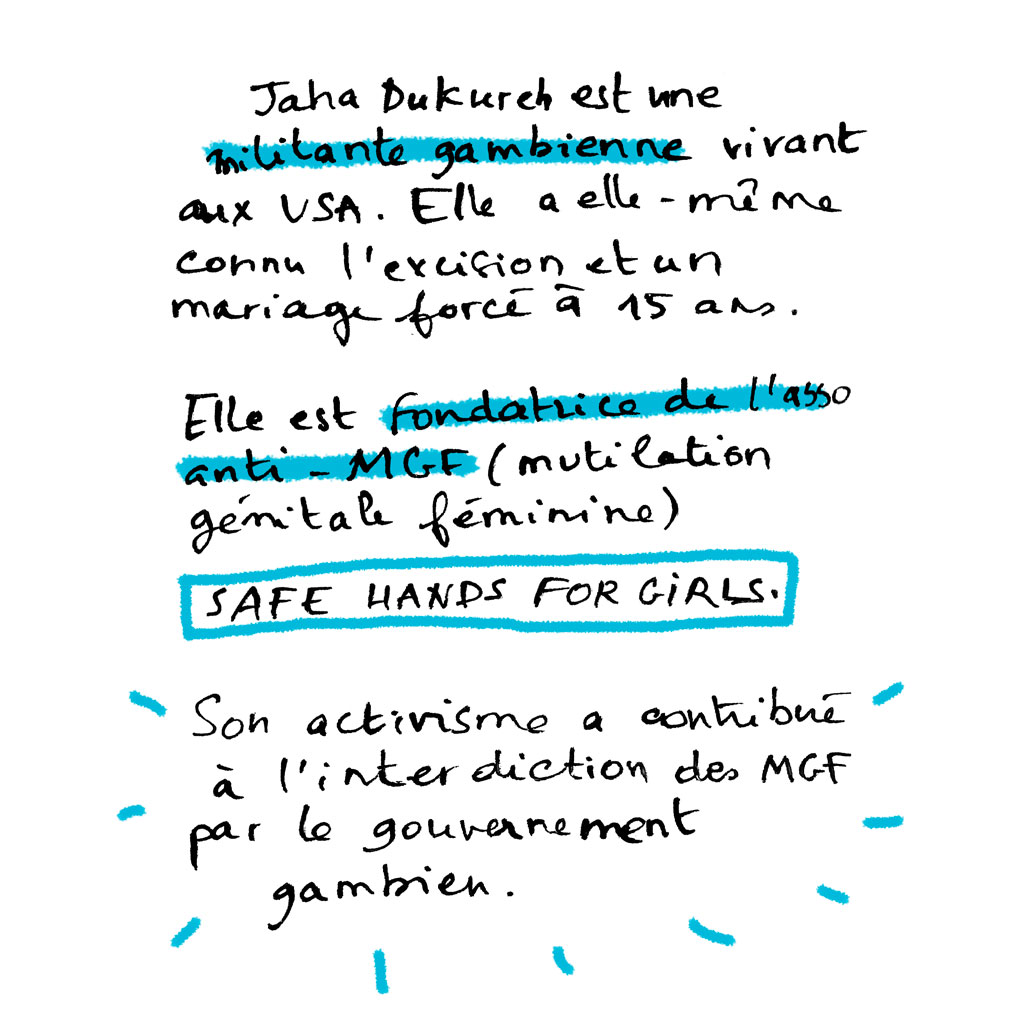 Jaha Dukureh est une
militante gambienne vivant
aux USA. Elle a elle-même
connu l'excision et un
mariage forcé à 15 ans.
Elle est fondatrice de l'asso
anti-MGF (mutilation
génitale féminine)
SAFE HANDS FOR GiRLS.
Son activisme a contribué
à l'interdiction des MGF
par le gouvernement
gambien.